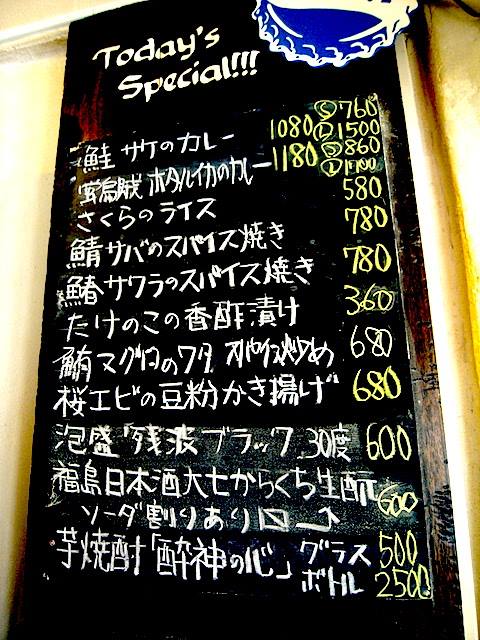 Today's
Special!!!
鮭 サケのカレー 1080 Ⓢ760 Ⓛ1500
蛍烏賊 ホタルイカのカレー 1180 Ⓢ860 Ⓛ1700
さくらのライス 580
鯖サバのスパイス焼き 780
鰆サワラのスパイス焼き 780
たけのこの香酢漬け 360
鮪マグロのワタ スパイス炒め 680
桜エビの豆粉かき揚げ 680
泡盛「残波ブラック 30度 600
福島日本酒大七からくち生酛 600
ソーダ割りあり
芋焼酎「酔神の心」 グラス 500
ボトル 2500